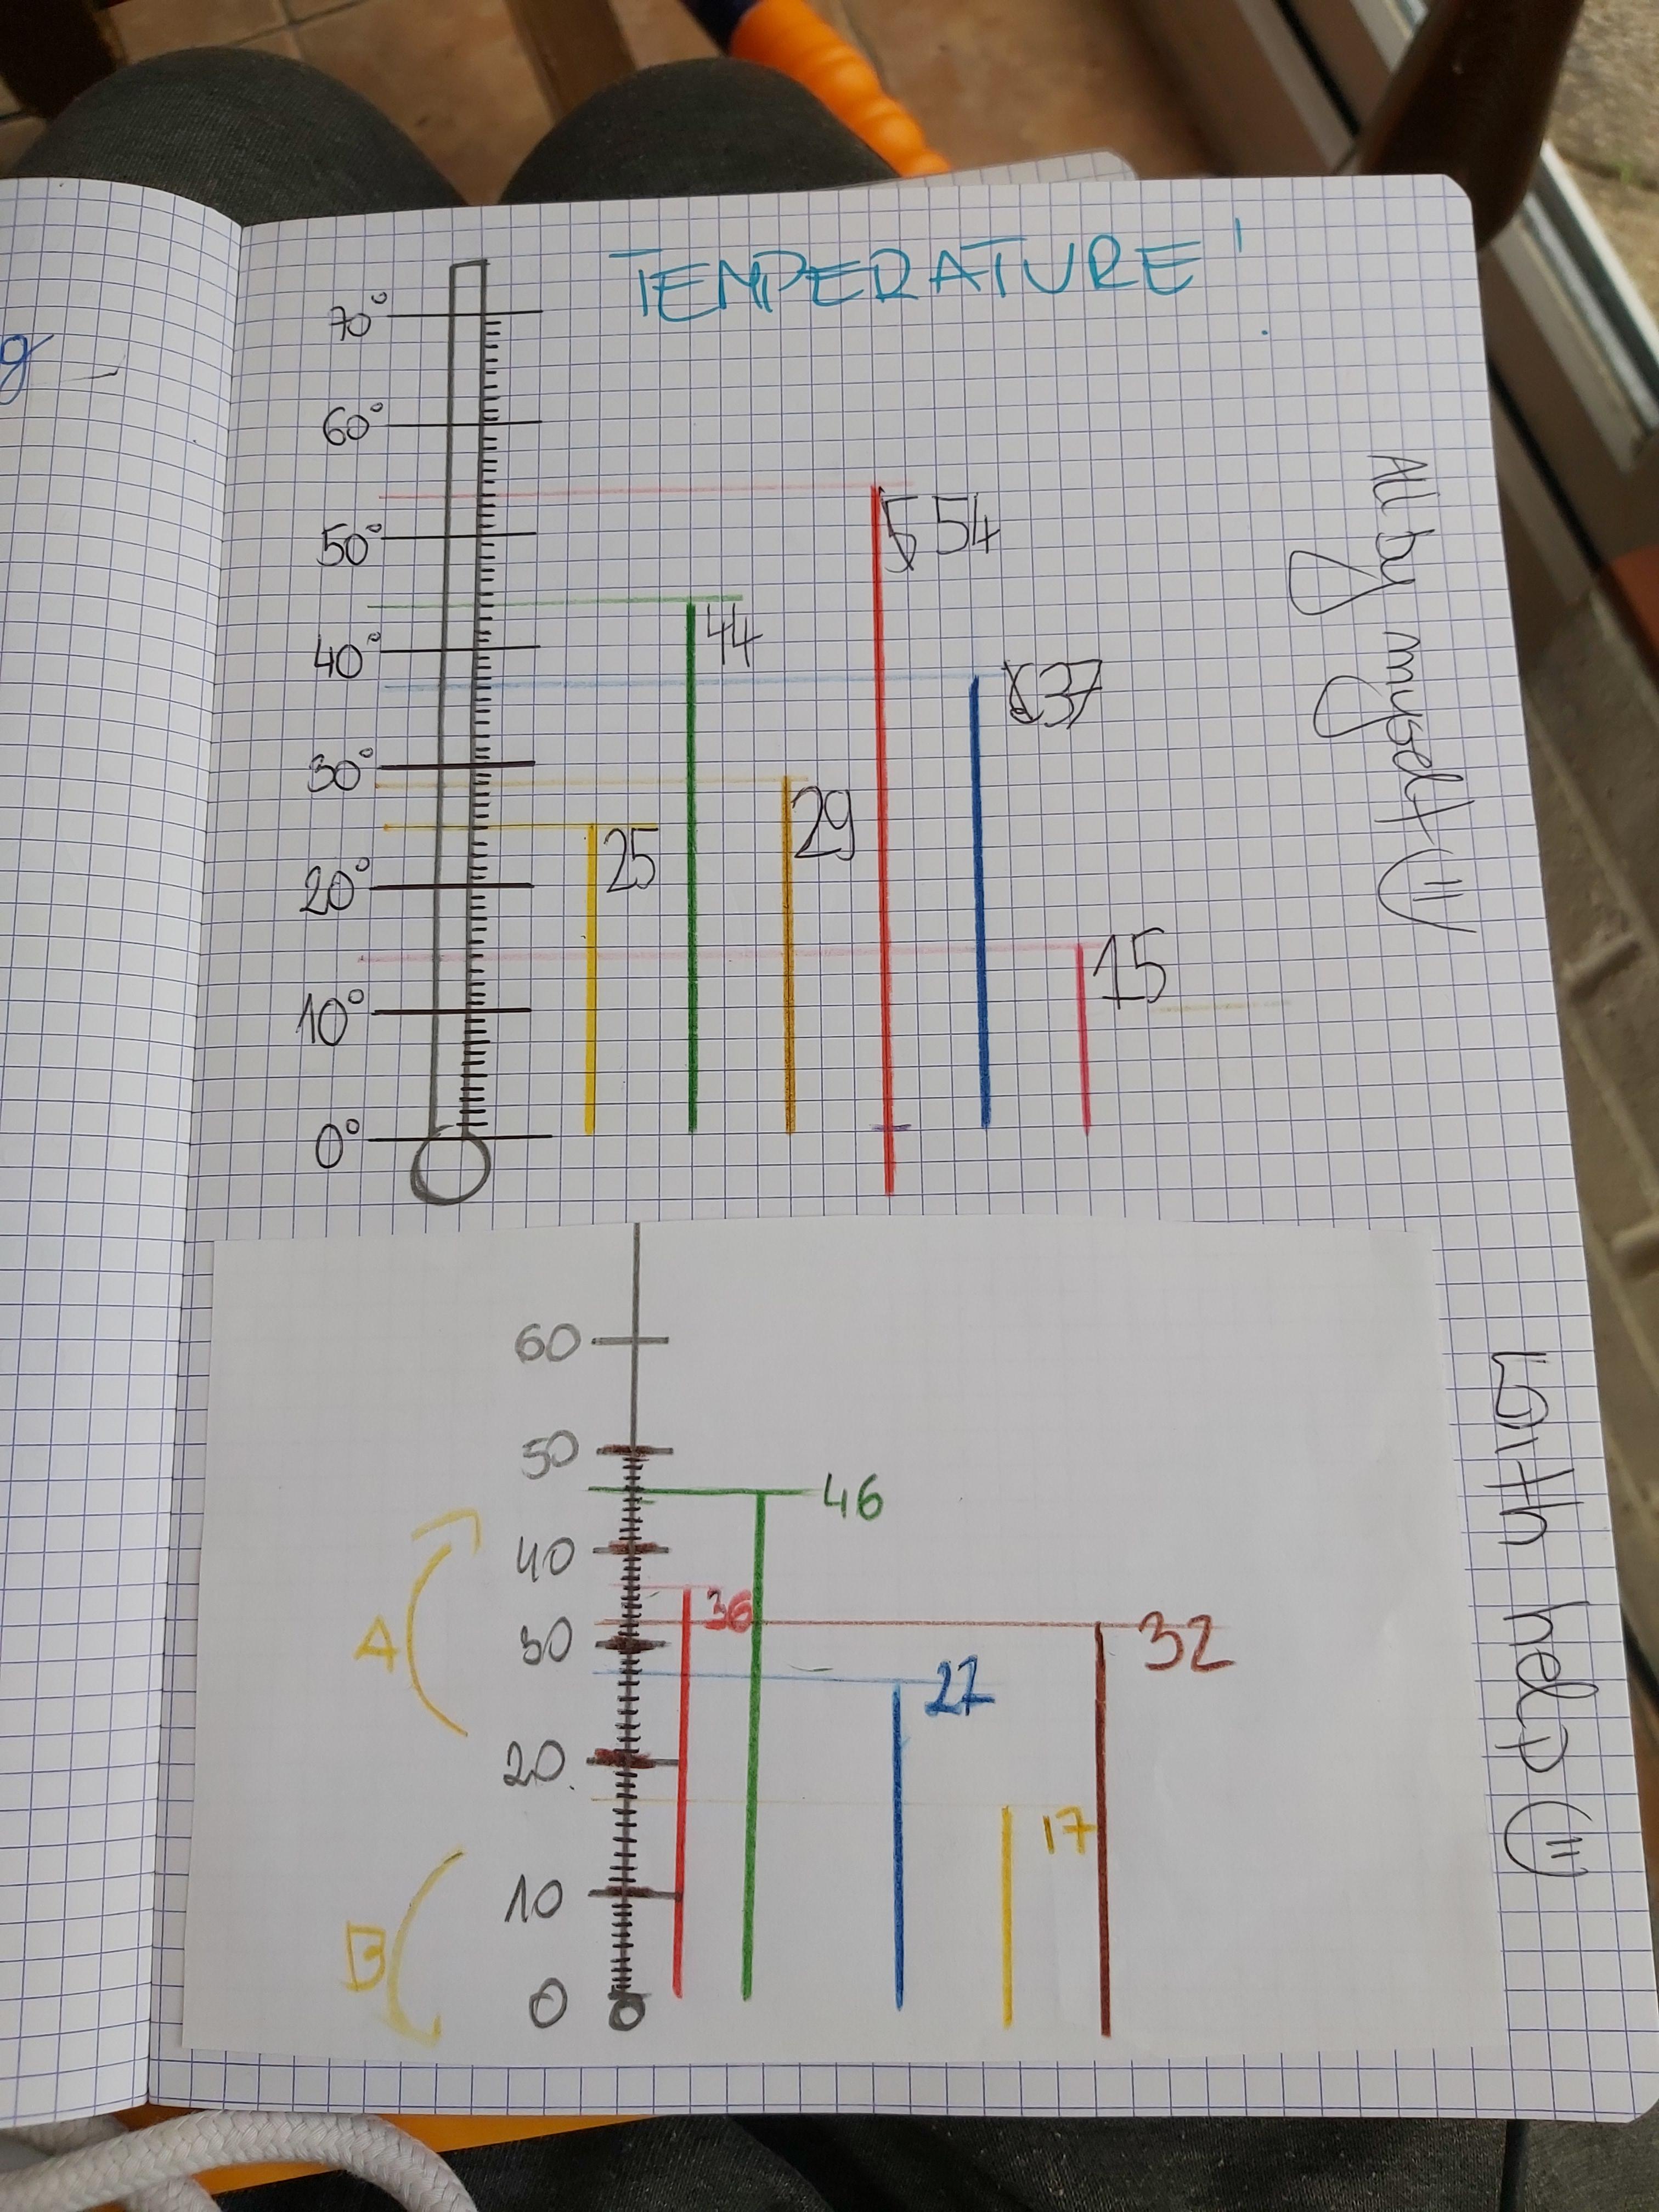 TEMPERATURE!
70°
60°
50°
40°
30°
20°
10°
0°
54
44
37
29
25
15
All by myself
60
50
40
30
20.
10
0
46
36
32
27
17
A
B
With help